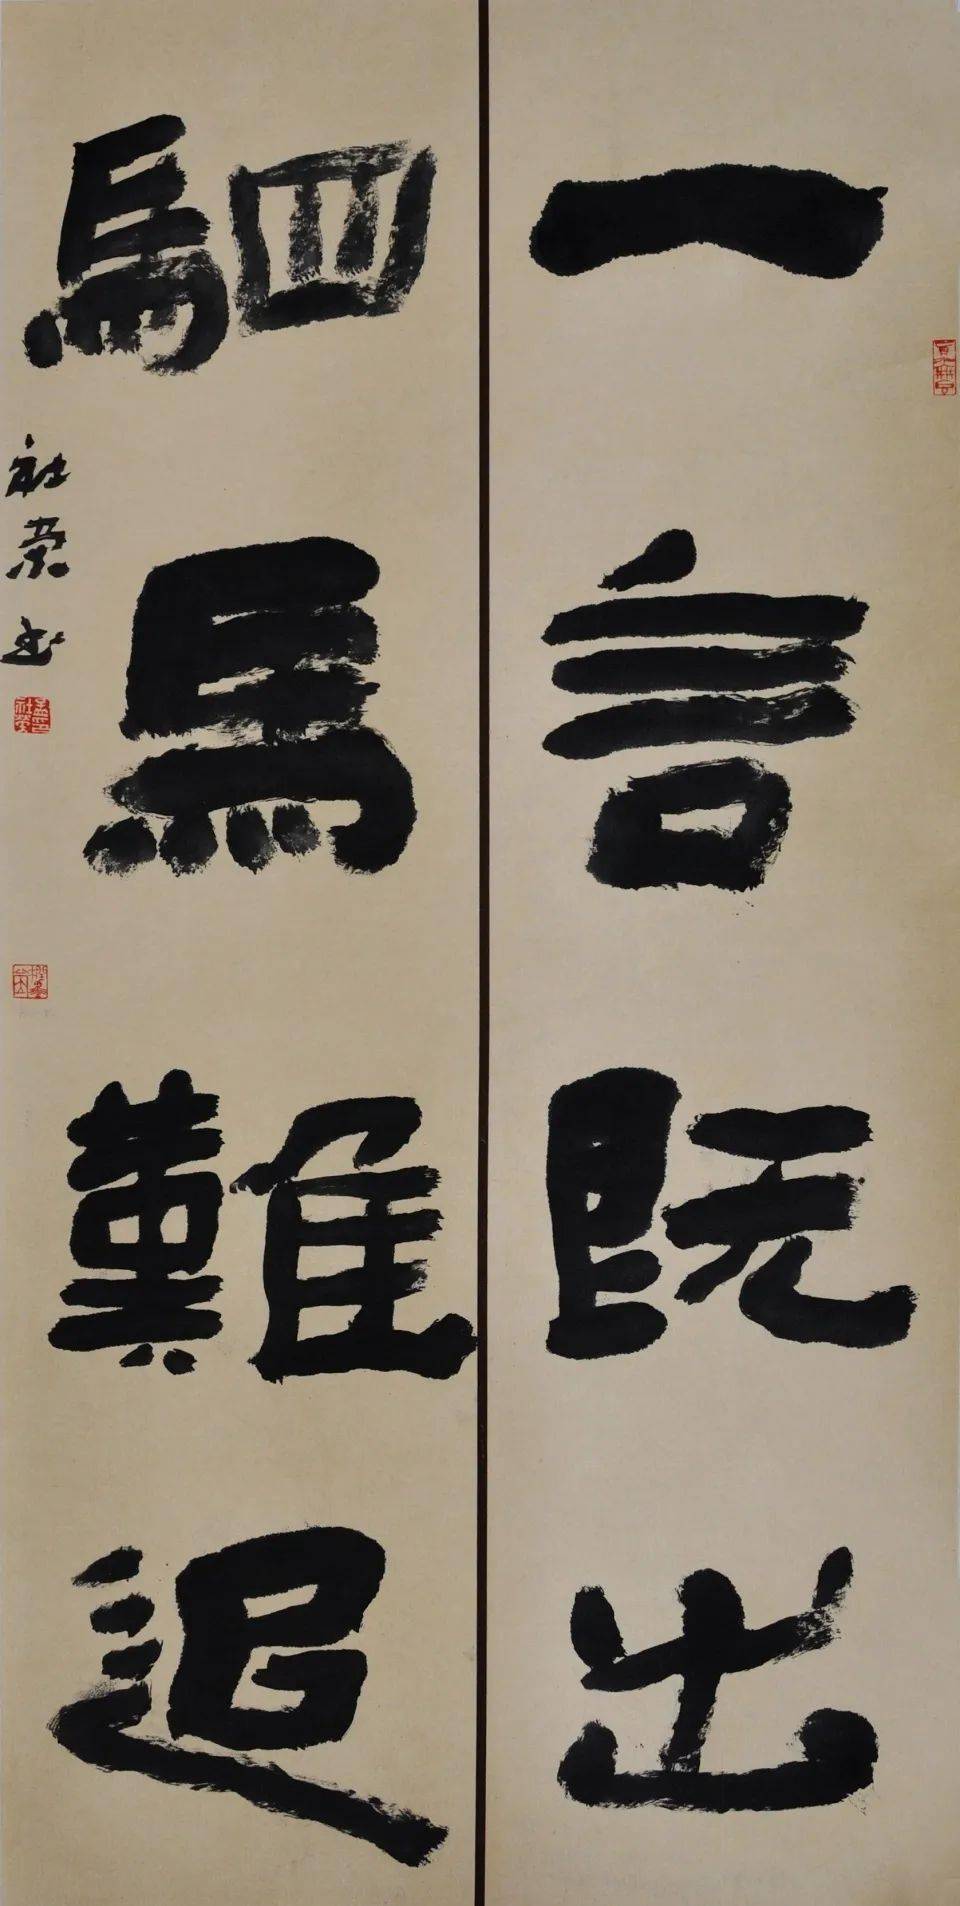 一言既出
駟馬難追
社荣书